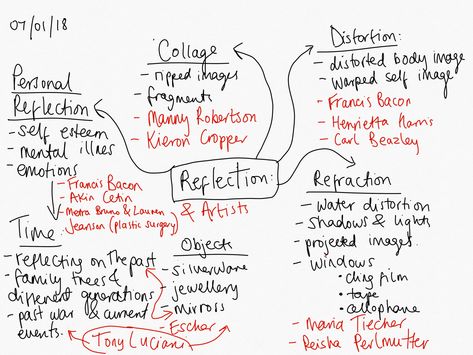 07/01/18
Collage
- ripped images
- fragments
- Manny Robertson
- Kieron Cropper
Distortion:
- distorted body image
- warped self image
- Francis Bacon
- Henrietta Harris
- Carl Beazley
Personal
Reflection
- self esteem
- mental illnes
- emotions
- Francis Bacon
- Akin Cetin
- Metra Bruno & Lauren
Jeanson (plastic surgery)
Reflection:
& Artists
Refraction
- water distortion
- shadows & lights
- projected images.
- windows
• cling film
• tape
• cellophane
- Maria Tiecher
- Reisha Perlmutter
Time:
- reflecting on The past
- family trees &
different generations
- past war & current
events.
Objects
- silverware
- jewellery
- mirrors
- Escher
Tony Luciani